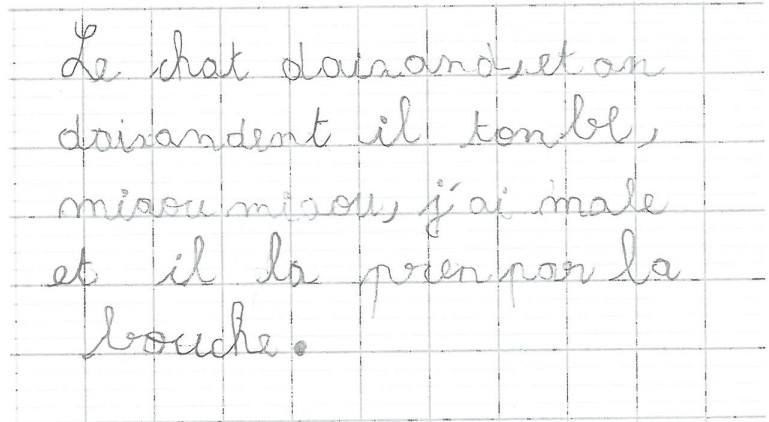 Le chat daisand, et an
daisandent il tonbe,
miaou miaou, j'ai male
et il la pren par la
bouche.